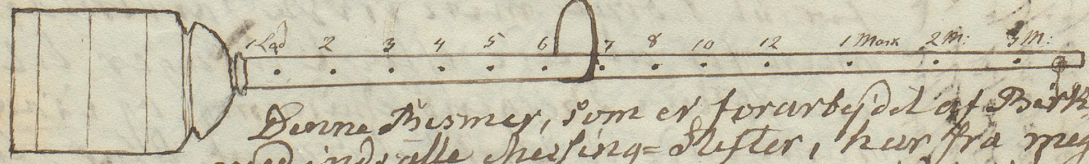 1 Lod 2 3 4 5 6 7 8 10 12 1 Mark 2 M: 3 M:
Denne Bismer, som er forarbejdet af Birk
med indsatte Messing=Stifter, har fra